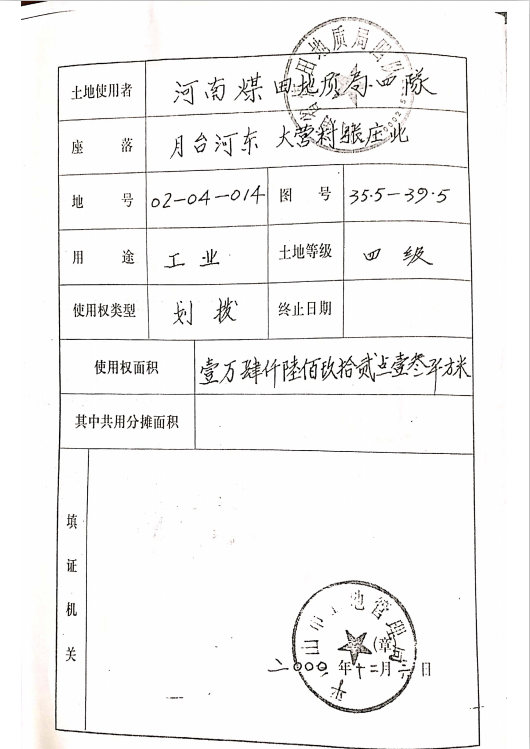 土地使用者 河南煤田地质局四隊
座落 月台河东 大营村张庄北
地号 02-04-014 图号 35.5-39.5
用途 工业 土地等级 四级
使用权类型 划拨 终止日期
使用权面积 壹万肆仟陆佰玖拾贰点壹叁平方米
其中共用分摊面积
填证机关
平 山市土地管理局
(章)
二000年十二月 日